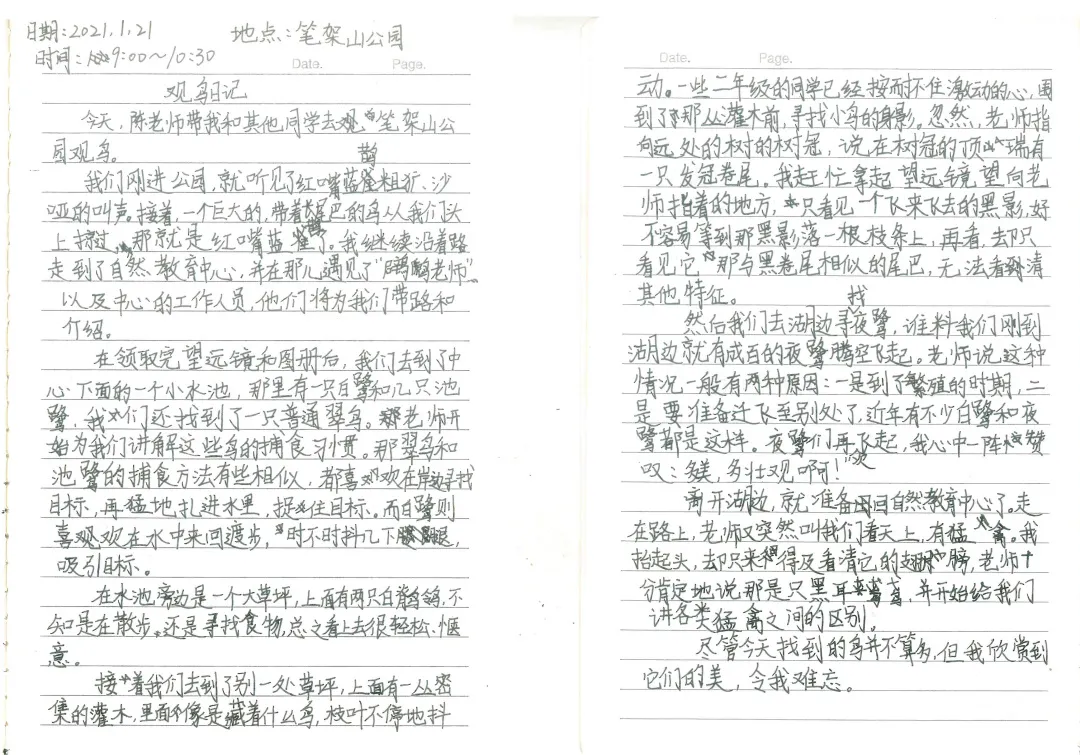 日期：2021.1.21 地点：笔架山公园
时间：9:00～10:30
Date. Page.
观鸟日记
今天，陈老师带我和其他同学去笔架山公
园观鸟。
我们刚进公园，就听见了红嘴蓝鹊粗犷、沙
哑的叫声。接着，一个巨大的，带着长尾巴的鸟从我们头
上掠过，那就是红嘴蓝鹊了。我继续沿着路
走到了自然教育中心，并在那儿遇见了“老师”
以及中心的工作人员，他们将为我们带路和
介绍。
在领取完望远镜和图册后，我们去到了中
心下面的一个小水池，那里有一只白鹭和几只池
鹭，我们还找到了一只普通翠鸟。老师开
始为我们讲解这些鸟的捕食习惯。那翠鸟和
池鹭的捕食方法有些相似，都喜欢在岸边寻找
目标，再猛地扎进水里，捉住目标。而白鹭则
喜欢在水中来回渡步，时不时抖几下腿，
吸引目标。
在水池旁边是一个大草坪，上面有两只白鹡鸰，不
知是在散步。还是寻找食物，总之看上去很轻松、惬
意。
接着我们去到了别一处草坪，上面有一丛密
集的灌木，里面像是藏着什么鸟，枝叶不停地抖
Date. Page.
动。一些二年级的同学已经按耐不住激动的心，围
到了那丛灌木前，寻找小鸟的身影。忽然，老师指
向远处的树的树冠，说在树冠的顶端有
一只发冠卷尾。我赶忙拿起望远镜望向老
师指着的地方，只看见一个飞来飞去的黑影，好
不容易等到那黑影落一根枝条上，再看，却只
看见它那与黑卷尾相似的尾巴，无法看清
其他特征。
然后我们去湖边寻找夜鹭，谁料我们刚到
湖边就有成百的夜鹭腾空飞起。老师说这种
情况一般有两种原因：一是到了繁殖的时期，二
是要准备迁飞至别处了，近年有不少白鹭和夜
鹭都是这样。夜鹭们再次飞起，我心中一阵赞
叹：多美，多壮观啊！
离开湖边，就准备回自然教育中心了。走
在路上，老师又突然叫我们看天上，有猛禽。我
抬起头，却只来得及看清它的翅膀，老师十
分肯定地说那是只黑耳鸢，并开始给我们
讲各类猛禽之间的区别。
尽管今天找到的鸟并不算多，但我欣赏到
它们的美，令我难忘。